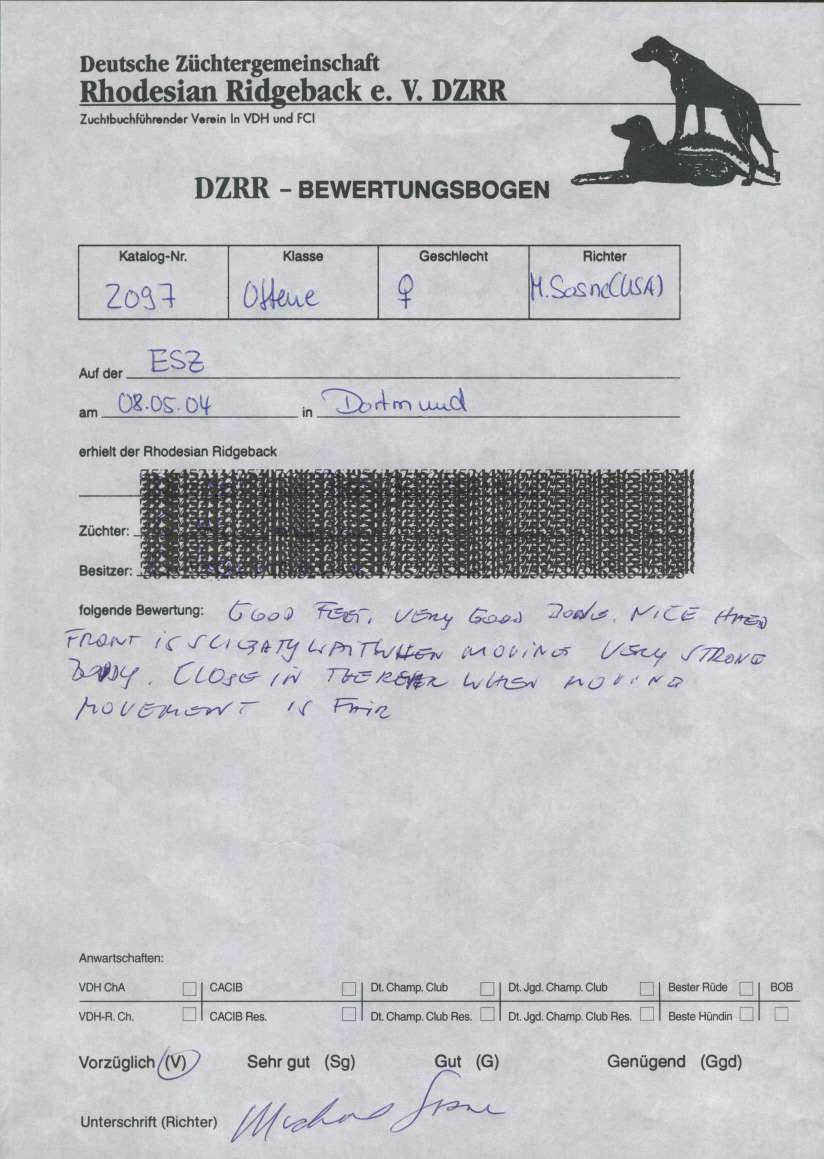 Deutsche Züchtergemeinschaft
Rhodesian Ridgeback e. V. DZRR
Zuchtbuchführender Verein In VDH und FCI
DZRR – BEWERTUNGSBOGEN
Katalog-Nr. Klasse Geschlecht Richter
2097 Offene ♀ M. Sosne (USA)
Auf der ESZ
am 08.05.04 in Dortmund
erhielt der Rhodesian Ridgeback
Züchter:
Besitzer:
folgende Bewertung: GOOD FEET, VERY GOOD BONE. NICE HEAD
FRONT IS WHEN MOVING VERY STRONG
BODY. CLOSE IN WHEN MOVING
MOVEMENT IS FAIR
Anwartschaften:
VDH ChA CACIB Dt. Champ. Club Dt. Jgd. Champ. Club Bester Rüde BOB
VDH-R. Ch. CACIB Res. Dt. Champ. Club Res. Dt. Jgd. Champ. Club Res. Beste Hündin
Vorzüglich (V) Sehr gut (Sg) Gut (G) Genügend (Ggd)
Unterschrift (Richter) Michael Sosne